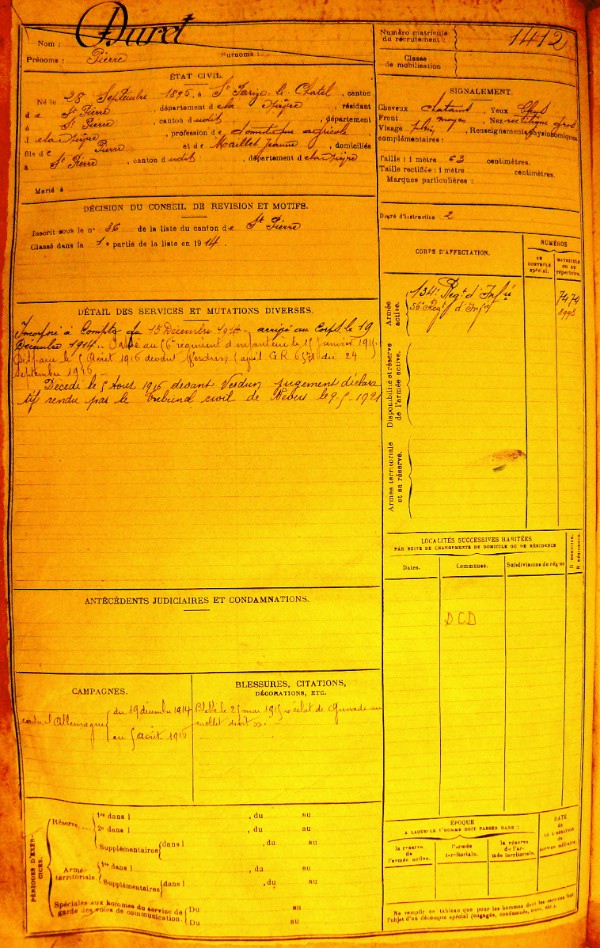 Nom : Duret
Prénoms : Pierre
Surnoms :
Numéro matricule
du recrutement :
1412
Classe
de mobilisation :
ÉTAT CIVIL.
Né le 28 Septembre 1895, à St Parize-le-Chatel, canton
d e St Pierre, département d e la Nièvre, résidant
à St Pierre, canton d udit, département
d e la Nièvre, profession de domestique agricole
fils de Pierre et de Maillet Jeanne, domiciliés
à St Pierre, canton d udit, département d e la Nièvre
Marié à
SIGNALEMENT.
Cheveux chatains Yeux
Front moyen Nez rectiligne gros
Visage plein Renseignements physionomiques
complémentaires :
Taille : 1 mètre 63 centimètres.
Taille rectifiée : 1 mètre centimètres.
Marques particulières :
Degré d'instruction : 2
DÉCISION DU CONSEIL DE REVISION ET MOTIFS.
Inscrit sous le n° 36 de la liste du canton d e St Pierre
Classé dans la 1e partie de la liste en 1914.
DÉTAIL DES SERVICES ET MUTATIONS DIVERSES.
Incorporé à compter du 15 Décembre 1914, arrivé au Corps le 19
Décembre 1914. Passé au 56e régiment d'infanterie le
Disparu le 5 Août 1916 devant Verdun (avis G.R. du 24
septembre 1916
Décédé le 5 Août 1916 devant Verdun jugement déclara
tif rendu par le tribunal civil de Nevers le 1921
CORPS D'AFFECTATION.
NUMÉROS
DU CONTRÔLE
spécial.
MATRICULE
OU DU
répertoire.
Armée
active.
134e Régt d'Infie 7474
56e Régt d'Infie
Disponibilité et réserve
de l'armée active.
Armée territoriale
et sa réserve.
LOCALITÉS SUCCESSIVES HABITÉES
PAR SUITE DE CHANGEMENTS DE DOMICILE OU DE RÉSIDENCE
Dates.
Communes.
Subdivisions de région
D. DOMICILE.
R. RÉSIDENCE.
DCD
ANTÉCÉDENTS JUDICIAIRES ET CONDAMNATIONS.
CAMPAGNES.
contre l'Allemagne
du 19 décembre 1914
au 5 août 1916
BLESSURES, CITATIONS,
DÉCORATIONS, ETC.
Blessé le 25 mai 1915 éclat de grenade au
mollet droit
PÉRIODES D'EXERCICES.
Réserve.
1re dans l , du au
2e dans l , du au
Supplémentaires dans l , du au
Armée
territoriale.
1re dans l , du au
Supplémentaires dans l , du au
Spéciales aux hommes du service de
garde des voies de communication.
Du au
Du au
ÉPOQUE
À LAQUELLE L'HOMME DOIT PASSER DANS :
la réserve
de l'armée active.
l'armée
territoriale.
la réserve
de l'ar-
mée territoriale.
DATE
de
LA LIBÉRATION
du
service militaire.
Ne remplir ce tableau que pour les hommes dont les services font
l'objet d'un décompte spécial (engagés, condamnés, omis, etc.).